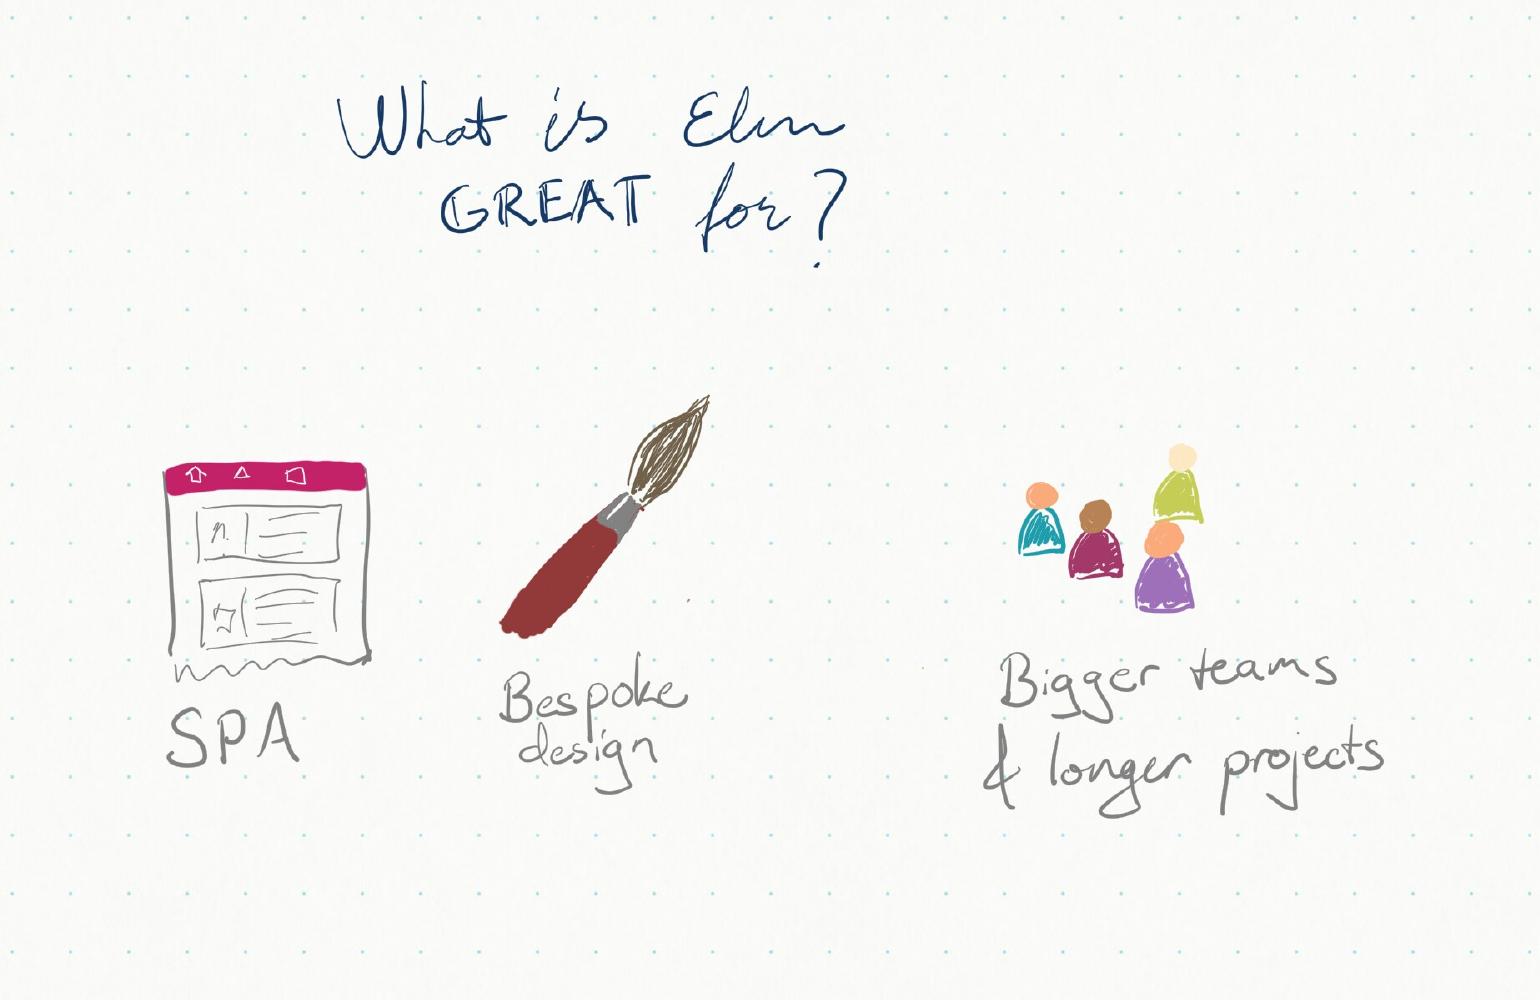 What is Elm
GREAT for?
SPA
Bespoke
design
Bigger teams
& longer projects